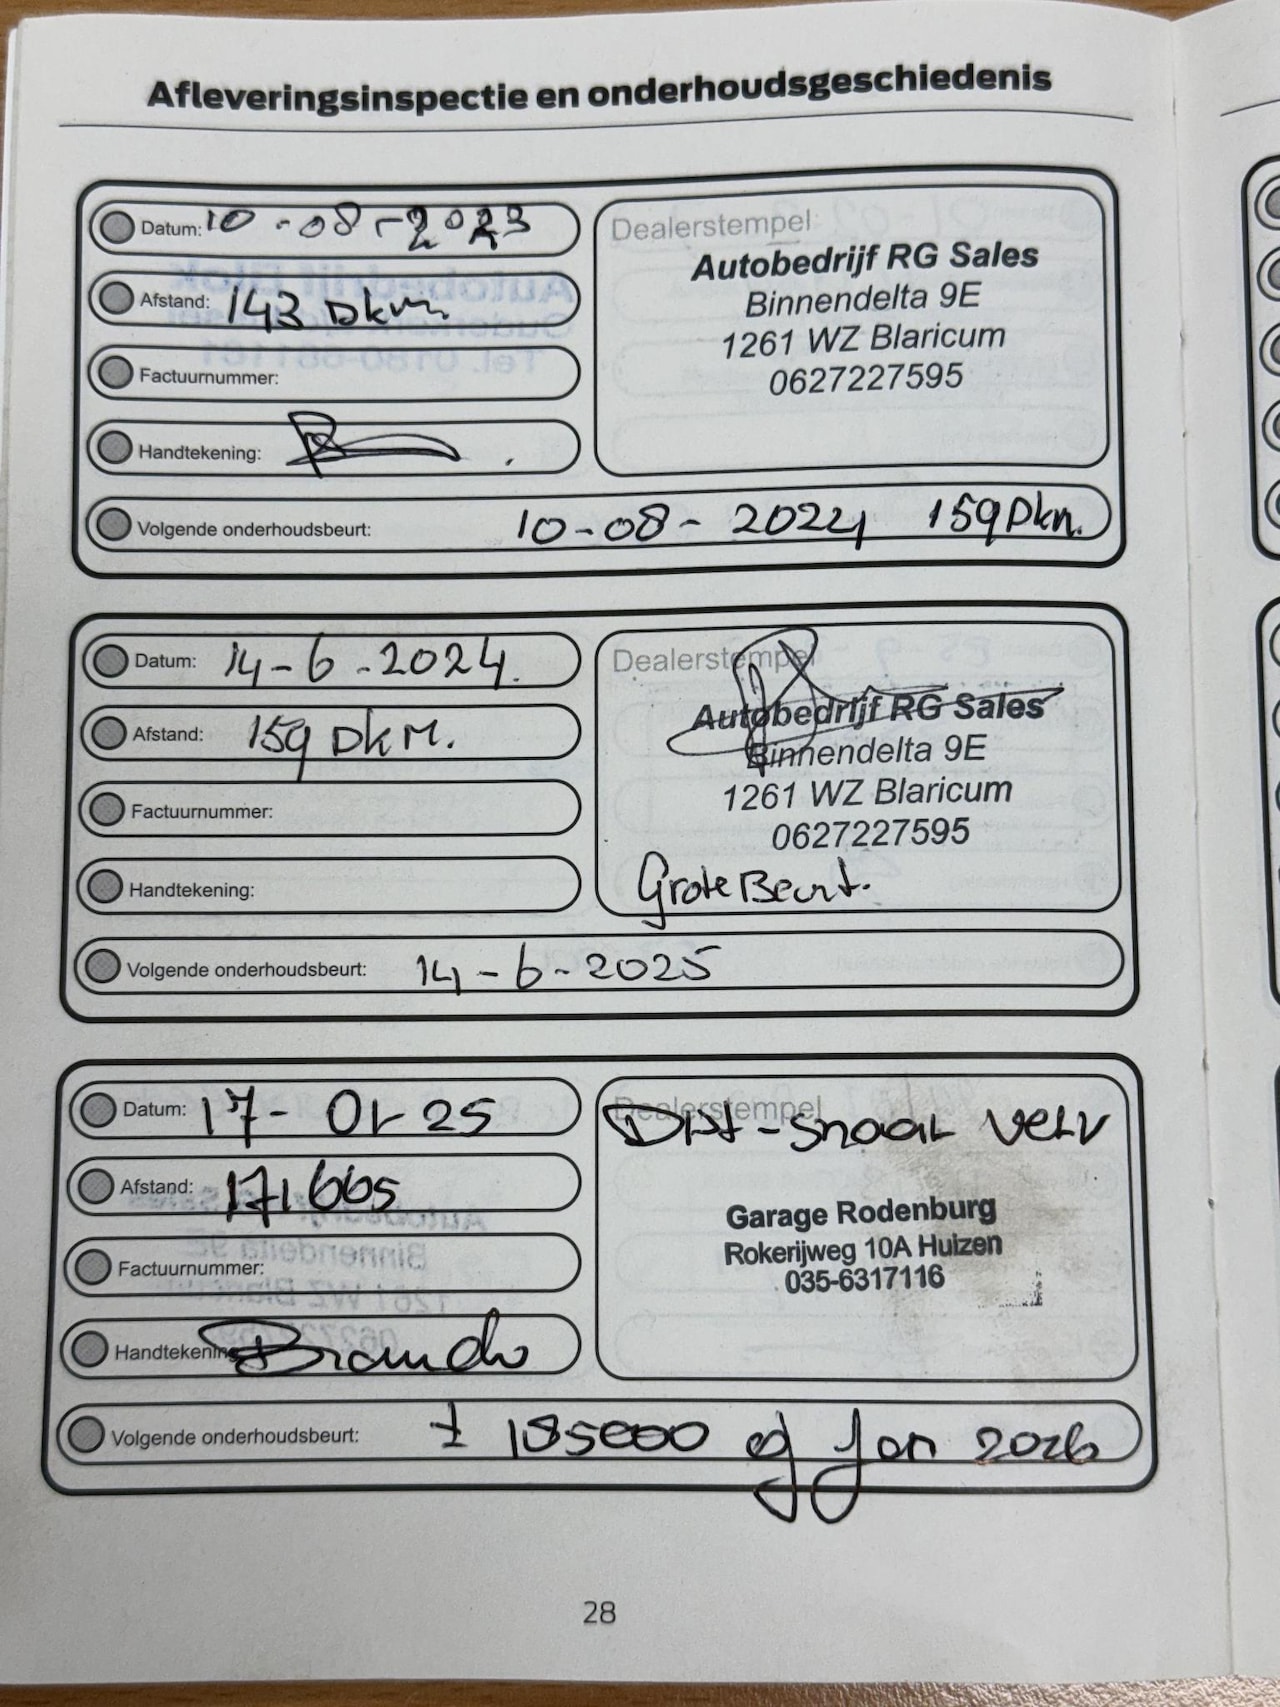 Afleveringsinspectie en onderhoudsgeschiedenis
Datum: 10-08-2023
Afstand: 143 Dkm
Factuurnummer:
Handtekening:
Volgende onderhoudsbeurt: 10-08-2024 159 Dkm.
Dealerstempel
Autobedrijf RG Sales
Binnendelta 9E
1261 WZ Blaricum
0627227595
Datum: 14-6-2024.
Afstand: 159 DkM.
Factuurnummer:
Handtekening:
Volgende onderhoudsbeurt: 14-6-2025
Dealerstempel
Autobedrijf RG Sales
Binnendelta 9E
1261 WZ Blaricum
0627227595
Grote Beurt.
Datum: 17-01-25
Afstand: 171665
Factuurnummer:
Handtekening:
Volgende onderhoudsbeurt: ± 185000 of Jan 2026
Dealerstempel
Dist-snaar verv
Garage Rodenburg
Rokerijweg 10A Huizen
035-6317116
28